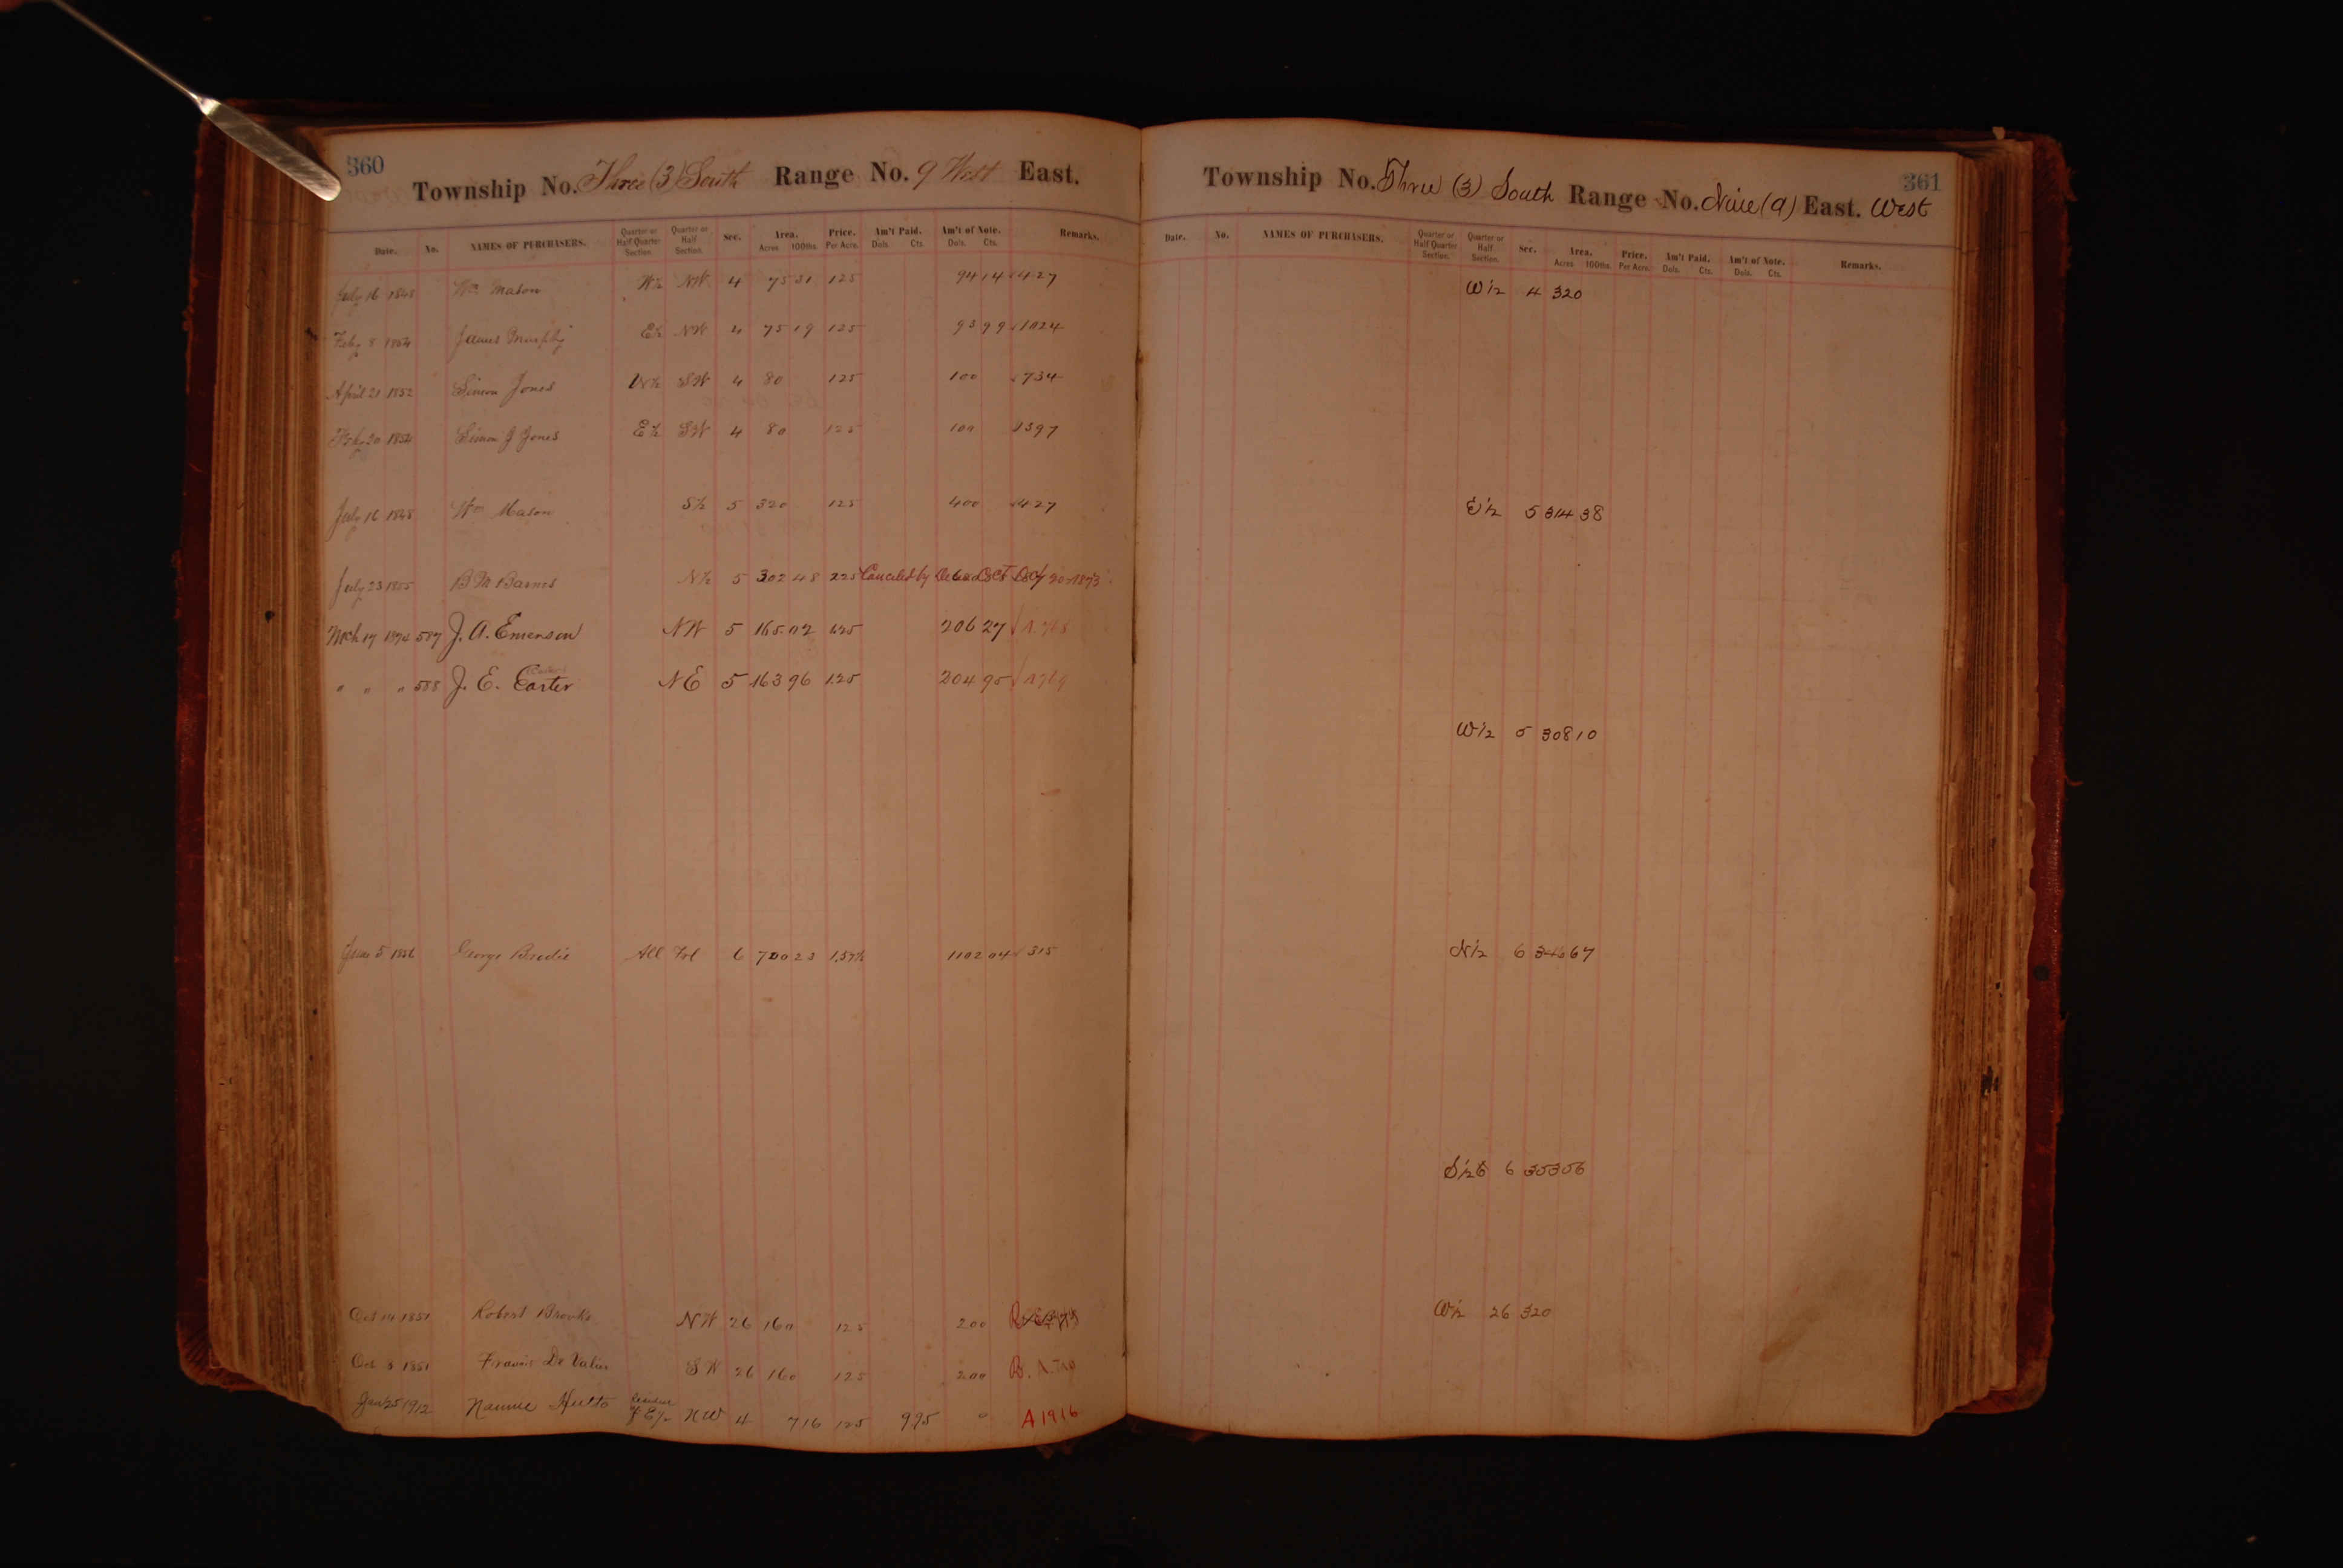 360
Township No. Three (3) South Range No. 9 West East.
Date. No. NAMES OF PURCHASERS. Quarter or Half Quarter Section. Quarter or Half Section. Sec. Area. Acres 100ths. Price. Per Acre. Am't Paid. Dols. Cts. Am't of Note. Dols. Cts. Remarks.
July 16 1848 Wm Mason W½ NW 4 75 31 125 94 14 427
Feby 8 1854 James Murphy E½ NW 4 75 19 125 93 99 1024
April 21 1852 Simon Jones W½ SW 4 80 125 100 734
Feby 20 1854 Simon J Jones E½ SW 4 80 125 100 1397
July 16 1848 Wm Mason S½ 5 320 125 400 427
July 23 1855 B M Barnes N½ 5 302 48 225 Canceled by 20 1873
Mch 17 1874 587 J. A. Emenson NW 5 165 02 125 206 27 A 768
" " " 588 J. E. Carter NE 5 163 96 125 204 95 A 769
June 5 1856 George Brodie All Frl 6 700 23 1.57½ 1102 04 315
Oct 14 1851 Robert Brooks NW 26 160 125 200
Oct 8 1851 Francis De Valier SW 26 160 125 200
Jan 25 1912 Nannie Hults Residue of E½ NW 4 7 16 125 995 0 A 1916
361
Township No. Three (3) South Range No. Nine (9) East. West
Date. No. NAMES OF PURCHASERS. Quarter or Half Quarter Section. Quarter or Half Section. Sec. Area. Acres 100ths. Price. Per Acre. Am't Paid. Dols. Cts. Am't of Note. Dols. Cts. Remarks.
W½ 4 320
E½ 5 314 38
W½ 5 308 10
N½ 6 346 67
S½ 6 6 353 56
W½ 26 320